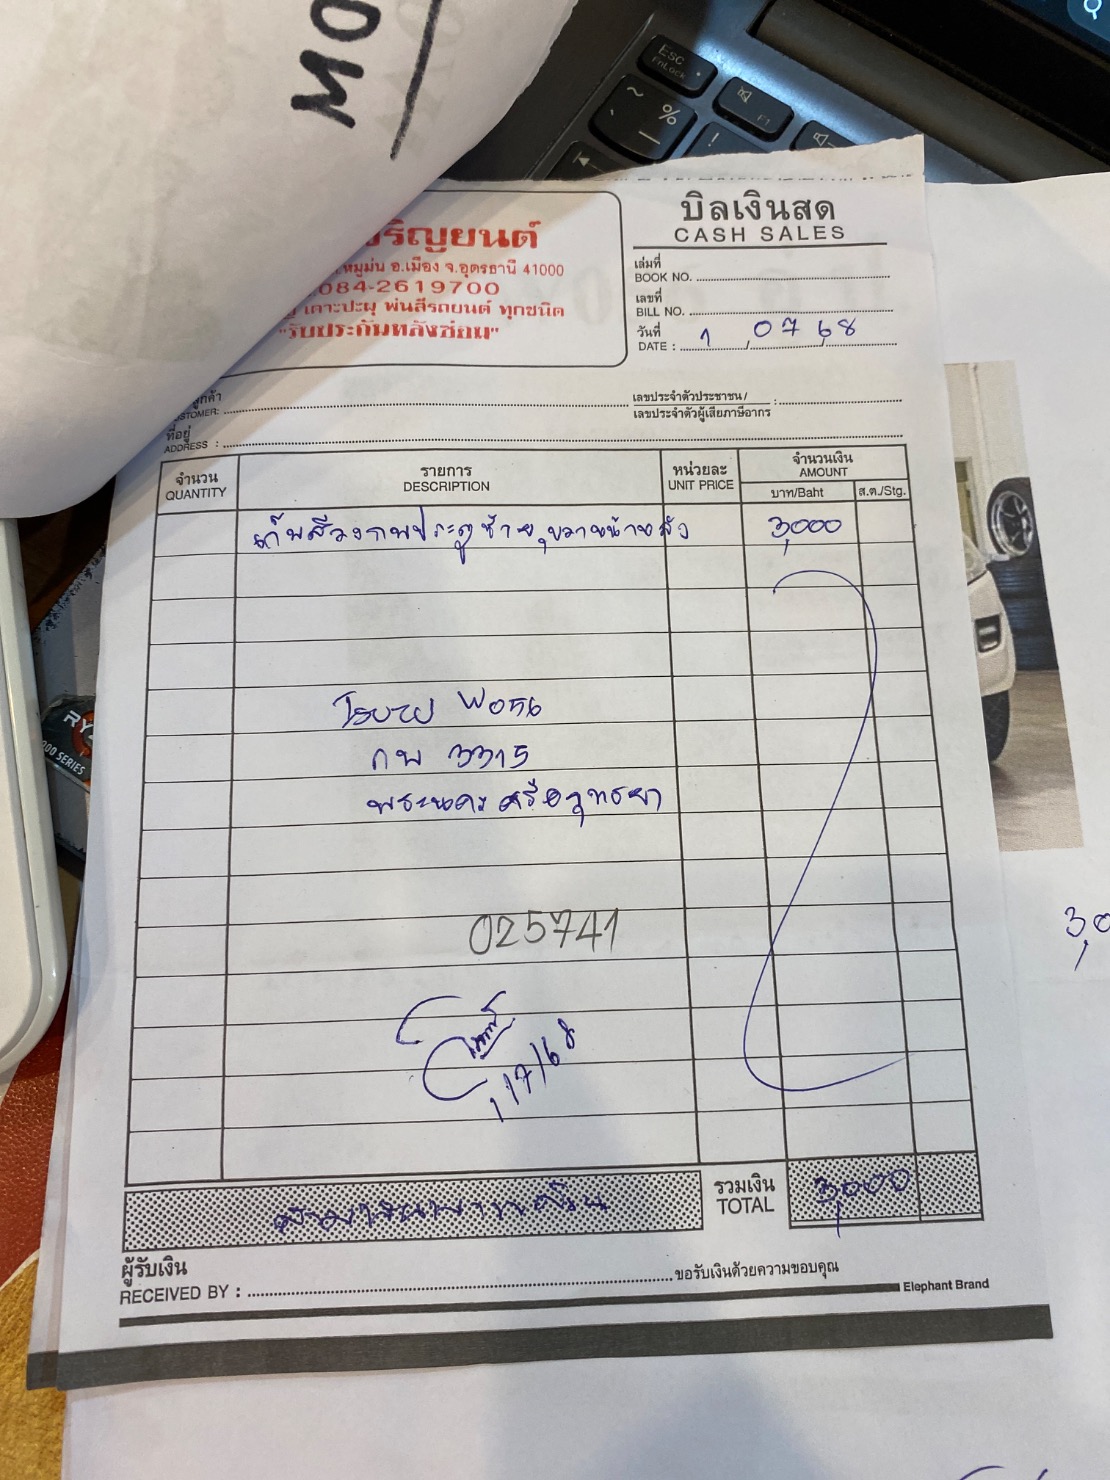 MO
ESC
FnLock
F1
~
%
!
ริญยนต์
หมูม่น อ.เมือง จ.อุดรธานี 41000
084-2619700
เคาะปะผุ พ่นสีรถยนต์ ทุกชนิด
"รับประกันหลังซ่อม"
บิลเงินสด
CASH SALES
เล่มที่
BOOK NO.
เลขที่
BILL NO.
วันที่
DATE : 1 07 68
ลูกค้า
CUSTOMER:
เลขประจำตัวประชาชน/ :
เลขประจำตัวผู้เสียภาษีอากร
ที่อยู่
ADDRESS :
จำนวน
QUANTITY
รายการ
DESCRIPTION
หน่วยละ
UNIT PRICE
จำนวนเงิน
AMOUNT
บาท/Baht
ส.ต./Stg.
เก็บสีวงกบประตูซ้าย,ขวาหน้าหลัง 3,000
โรบาย พ056
กพ 3315
พระนครศรีอยุธยา
025741
1/7/68
สามพันบาทถ้วน
รวมเงิน
TOTAL
3,000
ผู้รับเงิน
RECEIVED BY :
ขอรับเงินด้วยความขอบคุณ
Elephant Brand
RY
000 SERIES